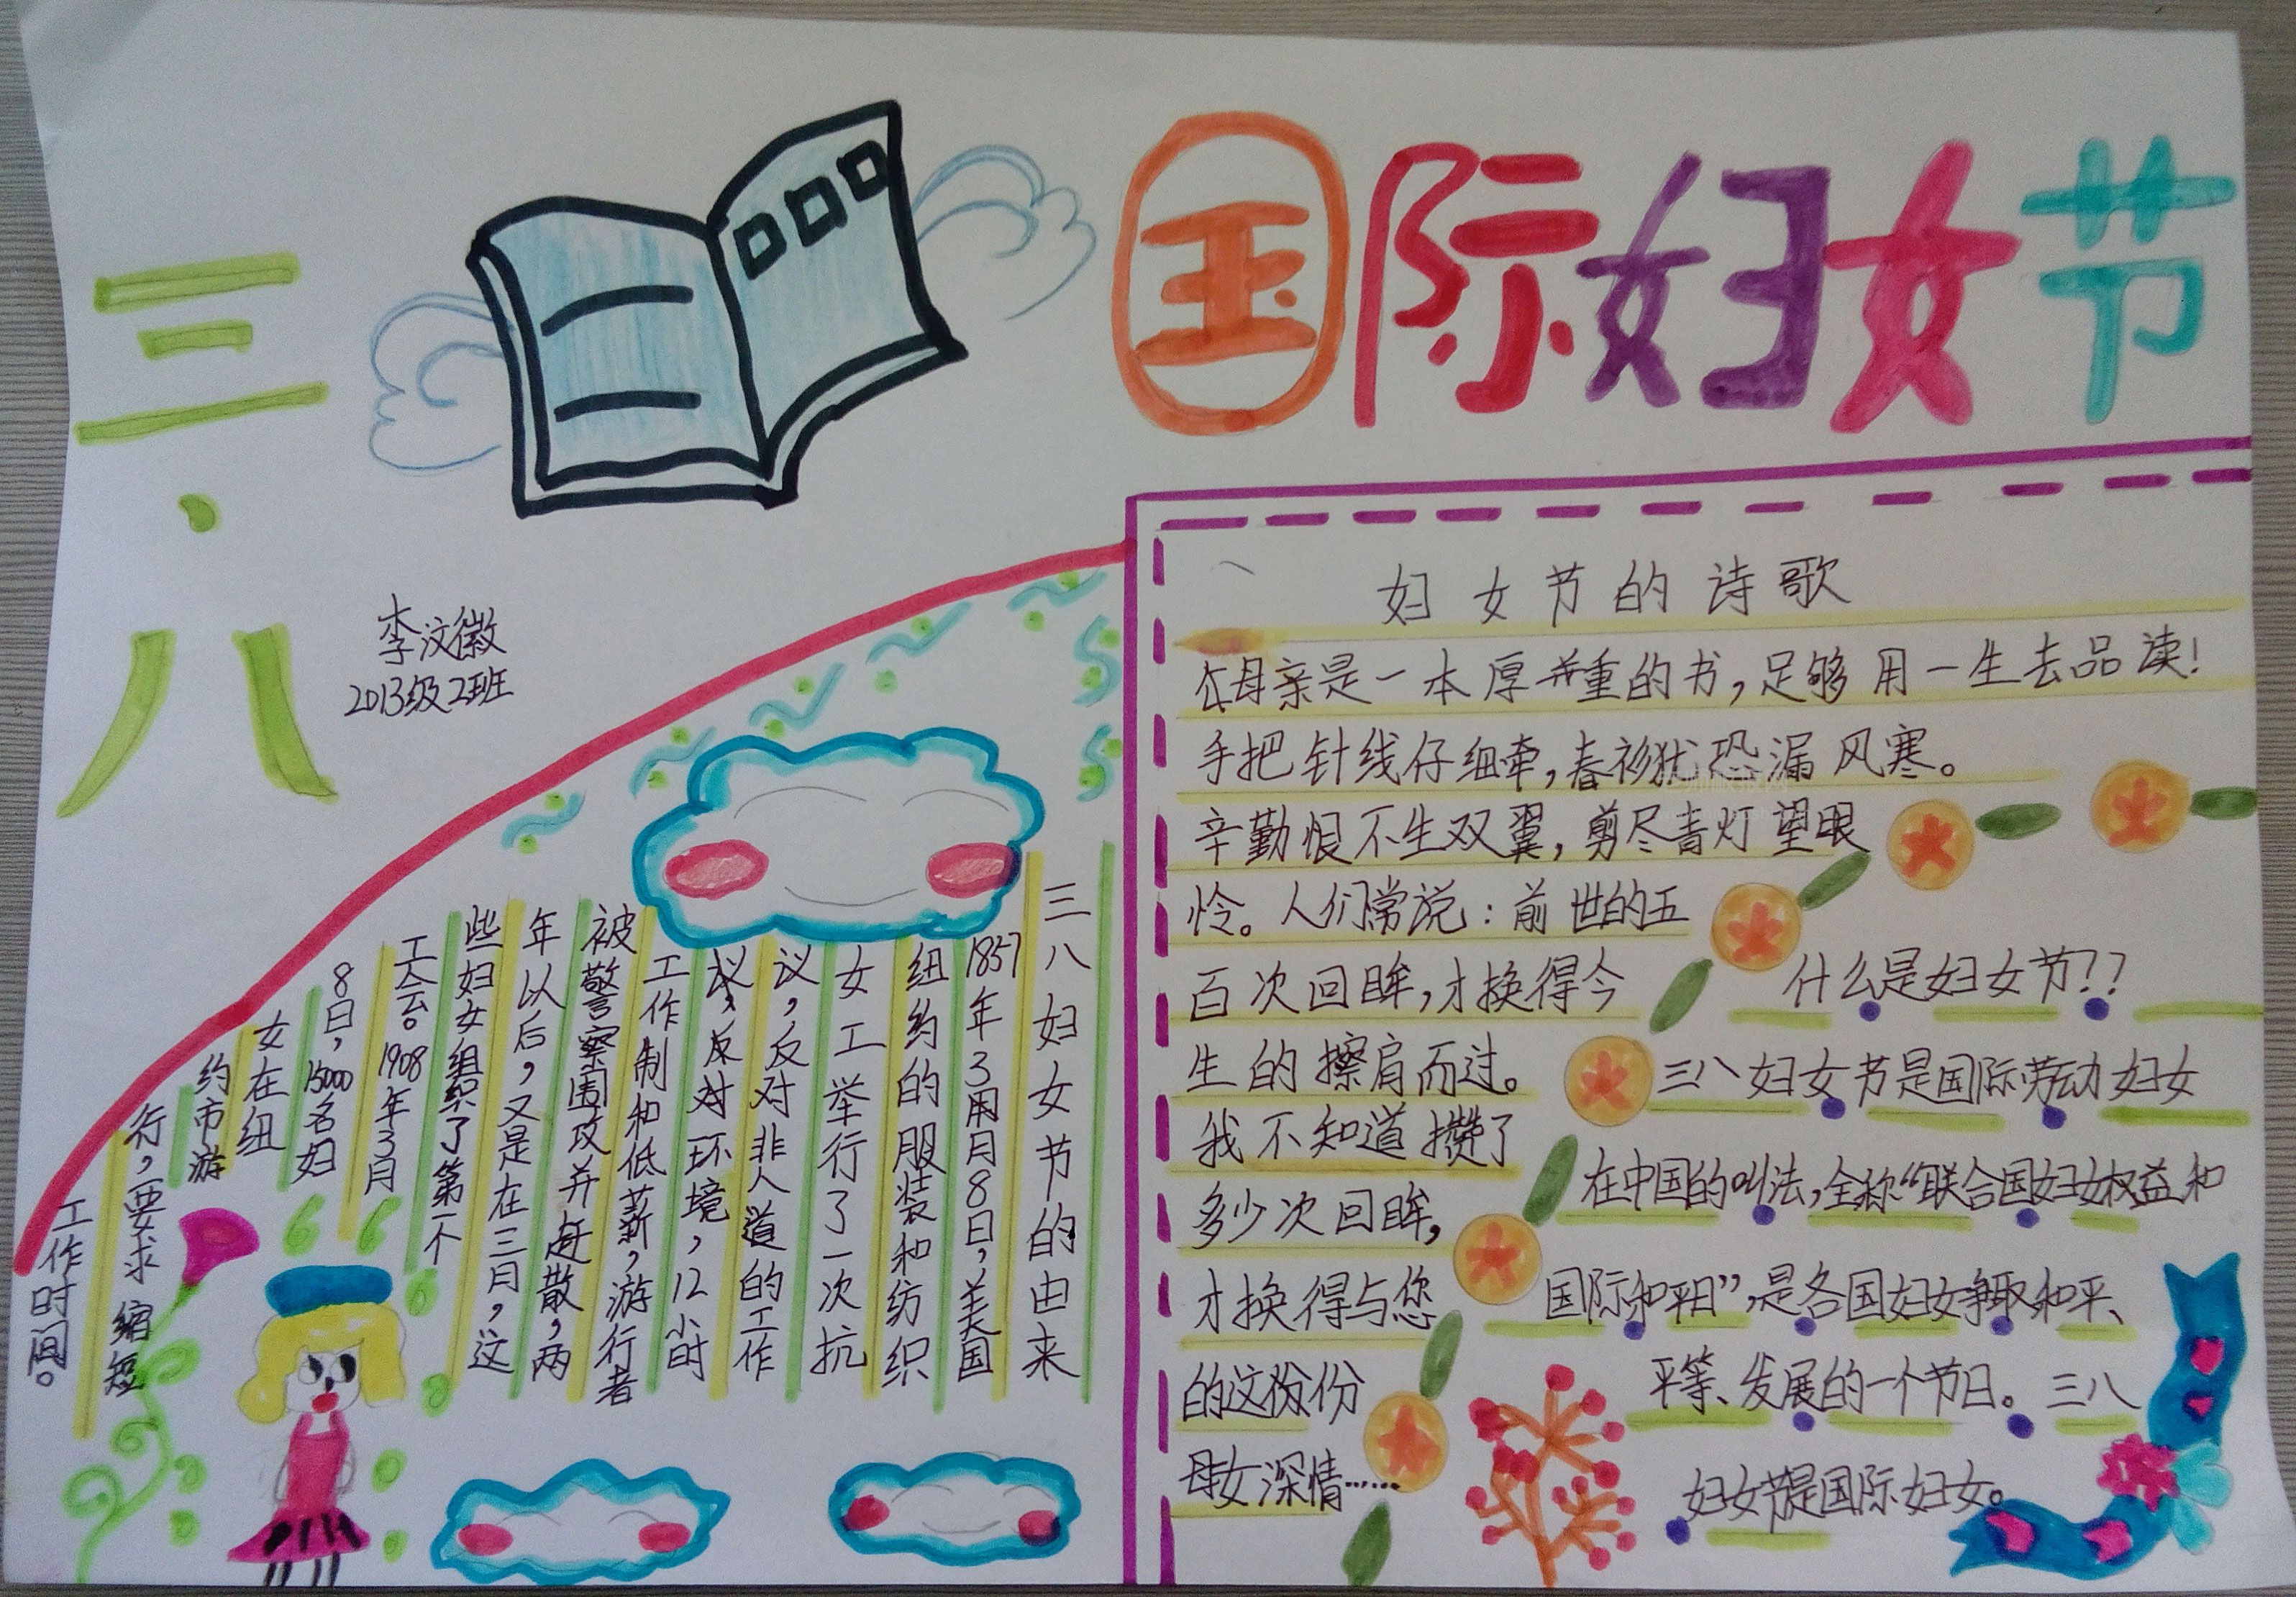 三·八
国际妇女节
李汶徽
2013级2班
三八妇女节的由来
1857年3用月8日,美国
纽约的服装和纺织
女工举行了一次抗
议,反对非人道的工作
议,反对环境,12小时
工作制和低薪,游行者
被警察围攻并赶散,两
年以后,又是在三月,这
些妇女组织了第一个
工会。1908年3月
8日,15000名妇
女在纽
约市游
行,要求缩短
工作时间。
妇女节的诗歌
母亲是一本厚重的书,足够用一生去品读!
手把针线仔细牵,春衫犹恐漏风寒。
辛勤恨不生双翼,剪尽青灯望眼
怜。人们常说:前世的五
百次回眸,才换得今
生的擦肩而过。
我不知道攒了
多少次回眸,
才换得与您
的这份份
母女深情……
什么是妇女节??
三八妇女节是国际劳动妇女
在中国的叫法,全称“联合国妇女权益和
国际和平日”,是各国妇女争取和平、
平等、发展的一个节日。三八
妇女节是国际妇女。